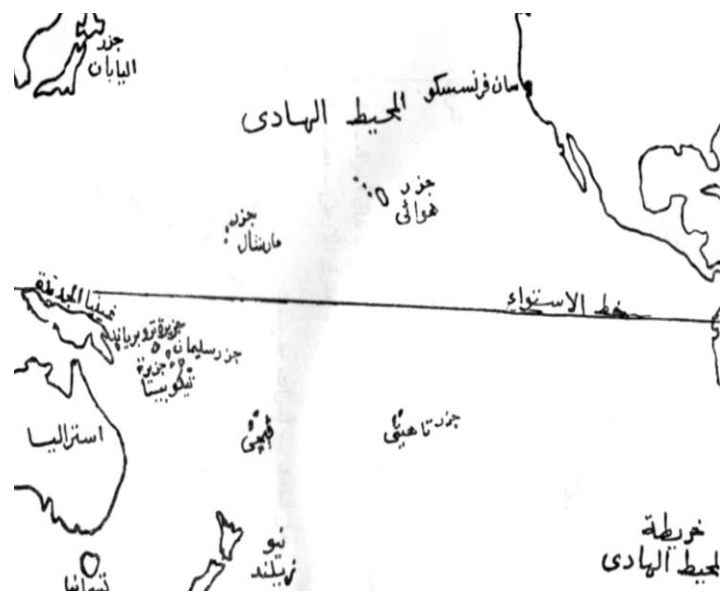 جزر
اليابان
سان فرنسسكو
المحيط الهادى
جزر
هوائى
جزر
مارشال
غينيا الجديدة
خط الاستواء
جزيرة تروبرياند
جزر سليمان
جزيرة
تيكوبيتا
استراليا
فيجى
جزر تاهيتى
نيو
زيلند
تسمانيا
خريطة
المحيط الهادى